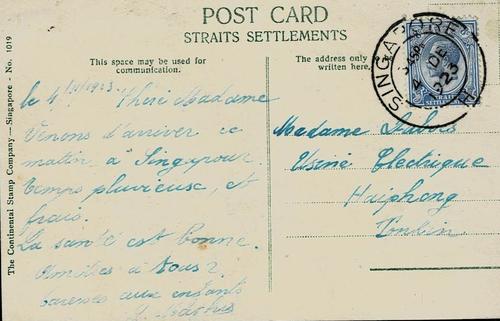 POST CARD
STRAITS SETTLEMENTS
This space may be used for
communication.
The address only
written here.
The Continental Stamp Company — Singapore - No. 1019
SINGAPORE
4 DE
1923
STRAITS
SETTLEMENTS
le 4 /12/1923 Chère Madame
Venons d'arriver ce
matin, à Singapour.
temps pluvieuse, et
frais.
La santé est bonne.
Amitiés à tous
caresses aux enfants
Madame
Usine Electrique
Haiphong
Tonkin